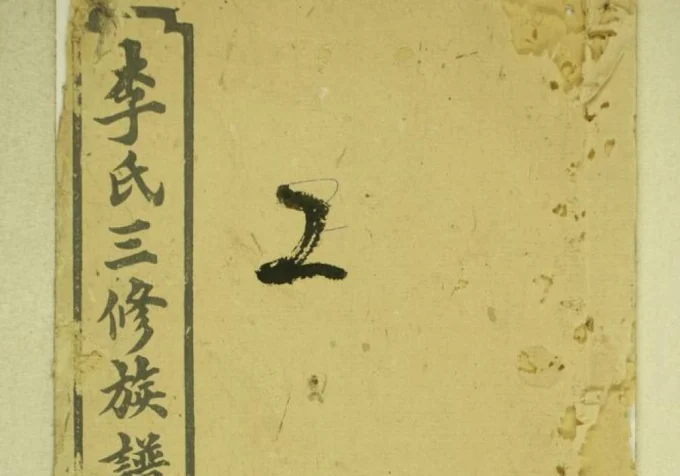 李氏三修族譜
2